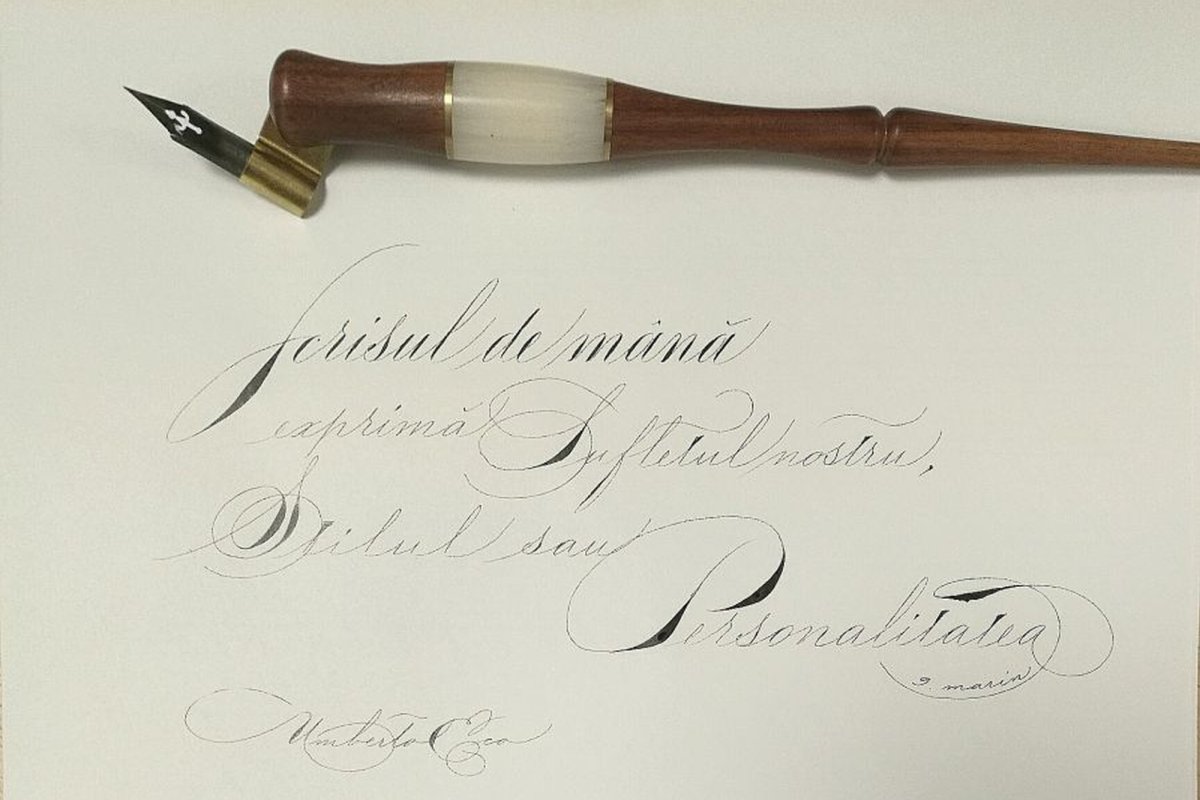 Scrisul de mână
exprimă Sufletul nostru,
Stilul sau
Personalitatea
g. marin
Umberto Eco